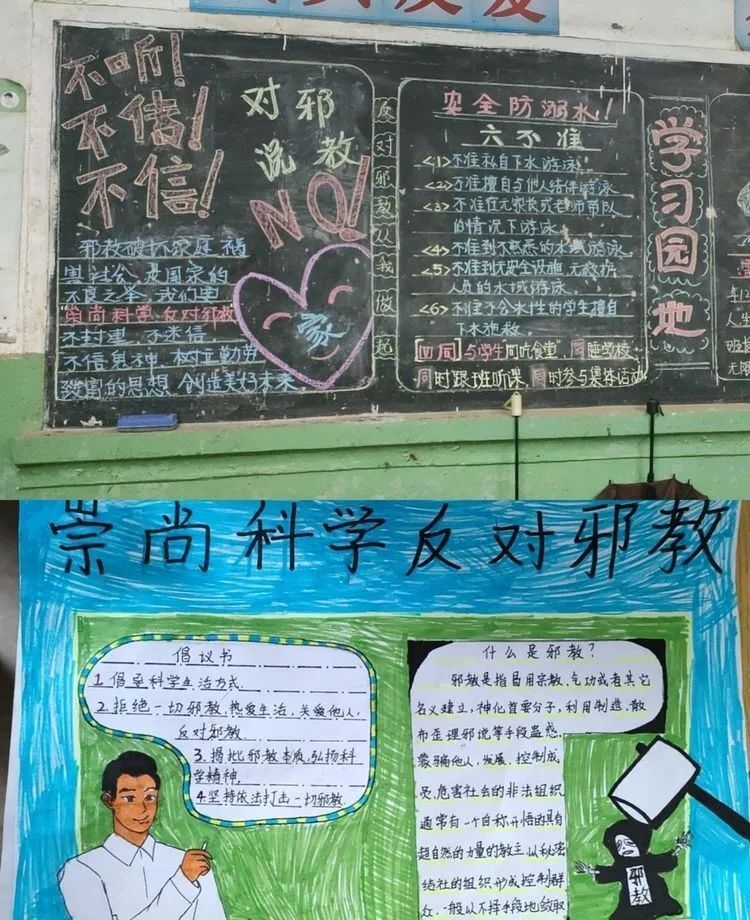 不听!
不传!
不信!
对邪
说教
NO!
邪教破坏家庭 祸
害社会 是国家的
不良之条 我们要
崇尚科学 反对邪教
不封建 不迷信
不信鬼神 树立勤劳
致富的思想 创造美好未来
家
反对邪教从我做起
安全防溺水!
六不准
<1>不准私自下水游泳
<2>不准擅自与他人结伴游泳
<3>不准在无家长或老师带队
的情况下游泳
<4>不准到不熟悉的水域游泳
<5>不准到无安全设施、无救护
人员的水域游泳
<6>不准不会水性的学生擅自
下水施救
[四同]与学生同吃食堂 同睡学校
同时跟班听课 同时参与集体活动
学习园地
崇尚科学反对邪教
倡议书
1.倡导科学生活方式
2.拒绝一切邪教,热爱生活,关爱他人,
反对邪教
3.揭批邪教本质,弘扬科
学精神
4.坚持依法打击一切邪教
什么是邪教?
邪教是指冒用宗教、气功或者其它
名义建立,神化首要分子,利用制造、散
布歪理邪说等手段蛊惑、
蒙骗他人,发展、控制成
员,危害社会的非法组织
通常有一个自称开悟的具有
超自然的力量的教主,以秘密
结社的组织形成控制群
众,一般以不择手段地敛取
邪教